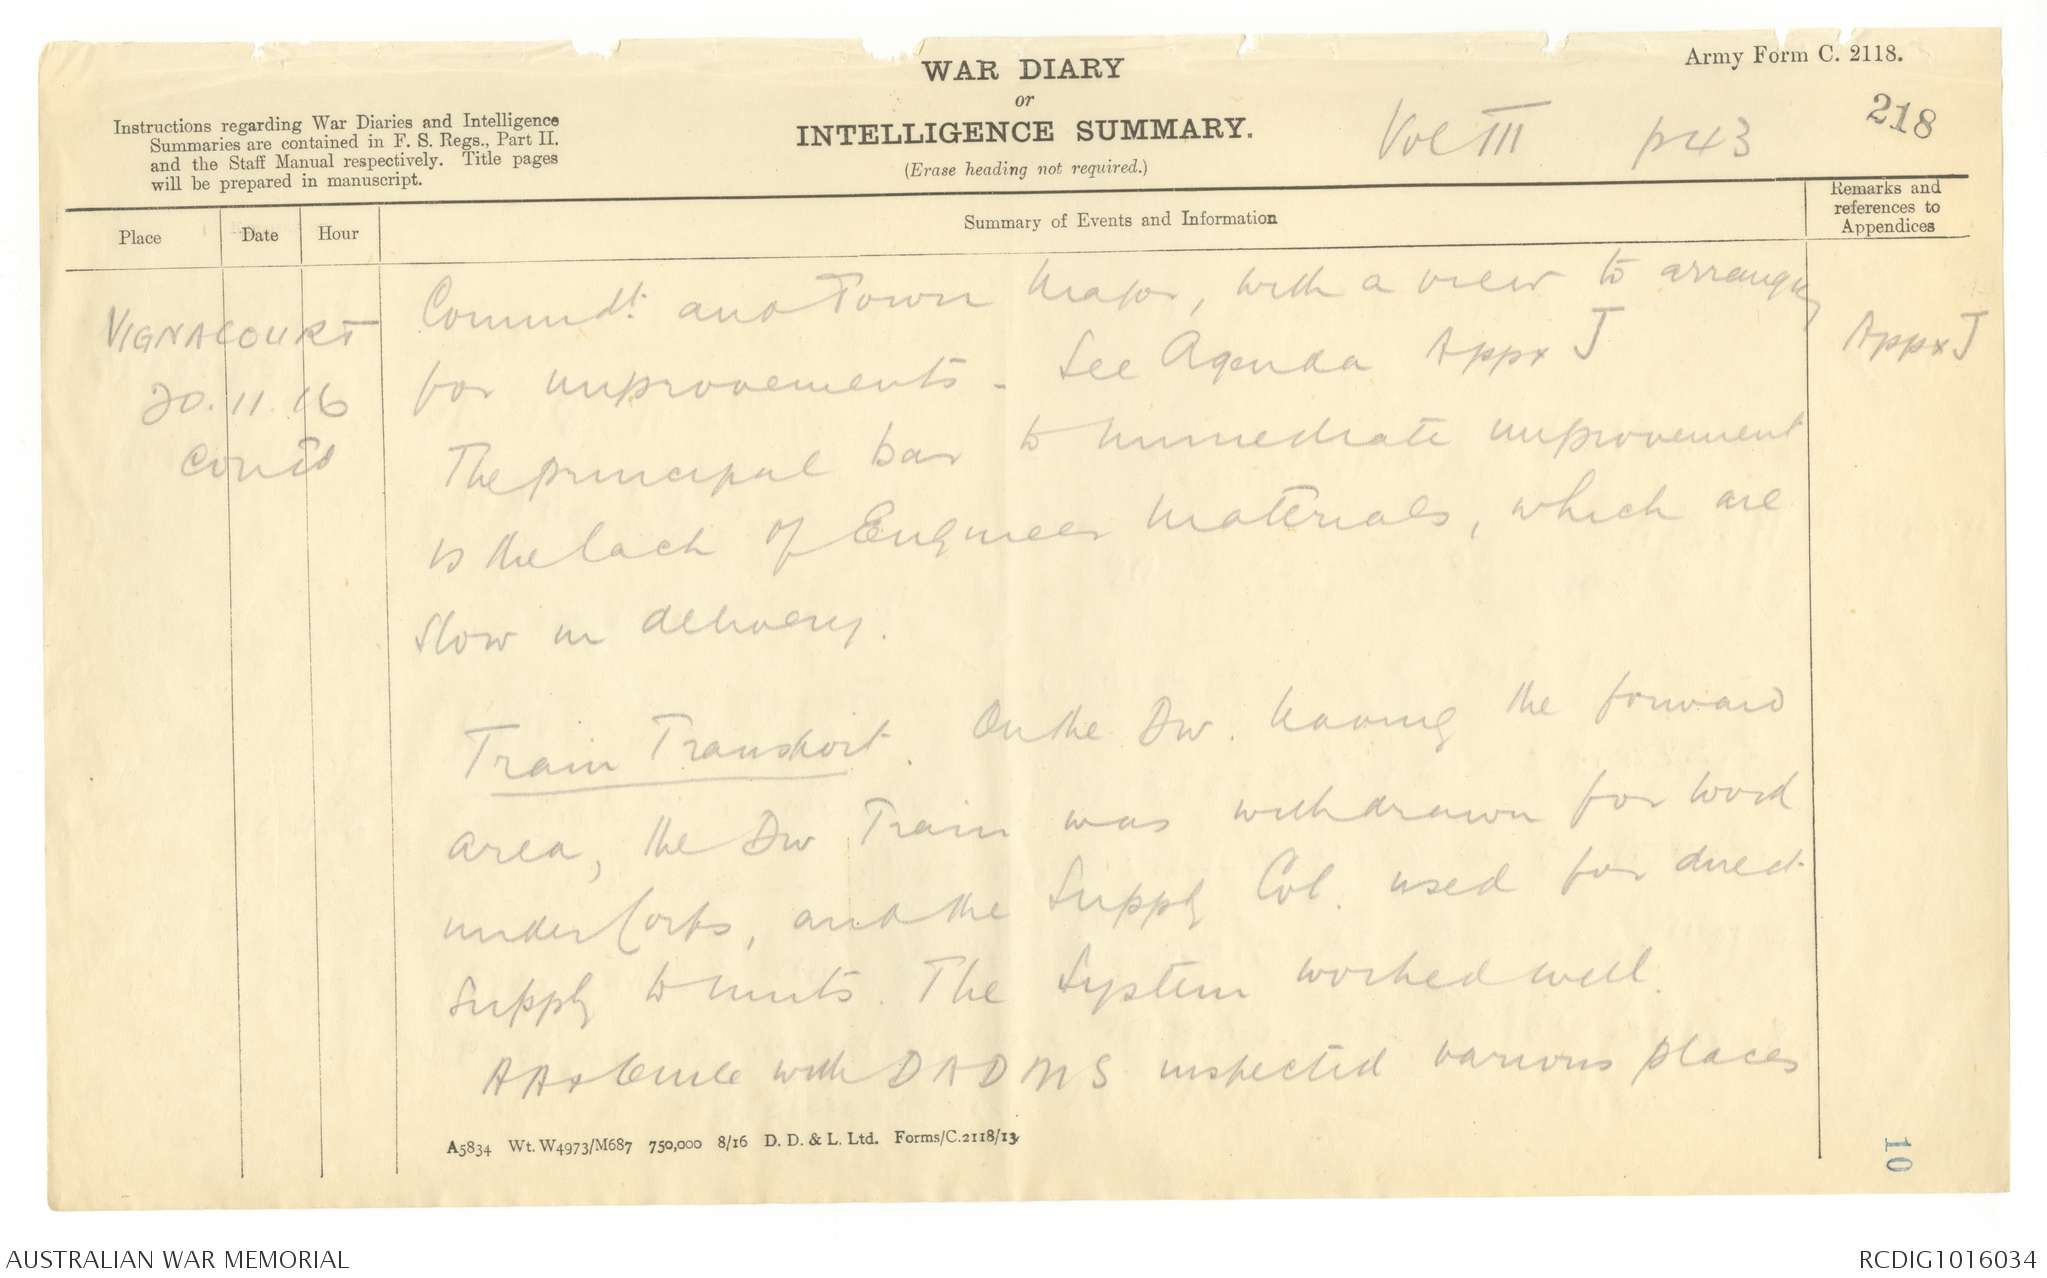 Army Form C. 2118.
WAR DIARY
or
INTELLIGENCE SUMMARY.
(Erase heading not required.)
Instructions regarding War Diaries and Intelligence
Summaries are contained in F. S. Regs., Part II.
and the Staff Manual respectively. Title pages
will be prepared in manuscript.
Vol III p43
218
Place
Date
Hour
Summary of Events and Information
Remarks and
references to
Appendices
VIGNACOURT
20.11.16
Cont'd
Commdt. and Town Major, with a view to arranging
for improvements - See Agenda Appx J
Appx J
The principal bar to immediate improvement
is the lack of Engineer Materials, which are
slow in delivery.
Train Transport. On the Div. having the forward
area, the Div Train was withdrawn for work
under Corps, and the Supply Col. used for direct
supply to units. The System worked well.
AA & QMG with DADMS inspected various places
A5834 Wt. W4973/M687 750,000 8/16 D. D. & L. Ltd. Forms/C.2118/13.
10
AUSTRALIAN WAR MEMORIAL
RCDIG1016034